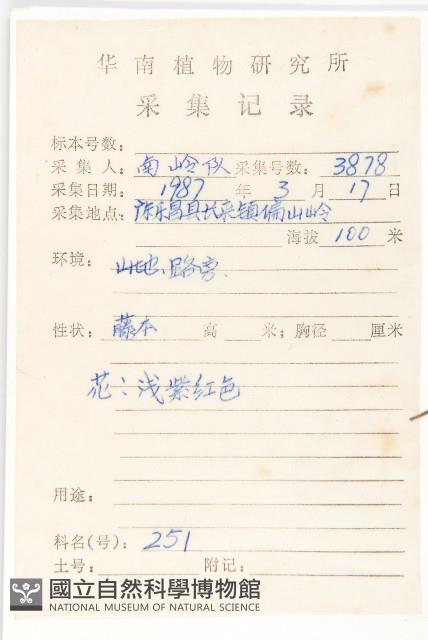 华南植物研究所
采集记录
标本号数:
采集人: 南岭队 采集号数: 3878
采集日期: 1987 年 3 月 17 日
采集地点: 乐昌县 镇 山岭
海拔 100 米
环境: 山地、路旁.
性状: 藤本 高 米; 胸径 厘米
花: 浅紫红色
用途:
科名(号): 251
土号: 附记:
國立自然科學博物館
NATIONAL MUSEUM OF NATURAL SCIENCE